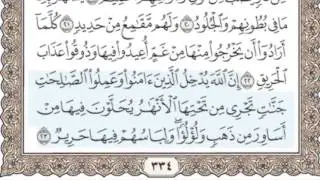 مَا فِي بُطُونِهِمْ وَٱلْجُلُودُ ۝٢٠ وَلَهُم مَّقَٰمِعُ مِنْ حَدِيدٍ ۝٢١ كُلَّمَآ
أَرَادُوٓا۟ أَن يَخْرُجُوا۟ مِنْهَا مِنْ غَمٍّ أُعِيدُوا۟ فِيهَا وَذُوقُوا۟ عَذَابَ
ٱلْحَرِيقِ ۝٢٢ إِنَّ ٱللَّهَ يُدْخِلُ ٱلَّذِينَ ءَامَنُوا۟ وَعَمِلُوا۟ ٱلصَّٰلِحَٰتِ
جَنَّٰتٍ تَجْرِى مِن تَحْتِهَا ٱلْأَنْهَٰرُ يُحَلَّوْنَ فِيهَا مِنْ
أَسَاوِرَ مِن ذَهَبٍ وَلُؤْلُؤًا ۖ وَلِبَاسُهُمْ فِيهَا حَرِيرٌ ۝٢٣
٣٣٤